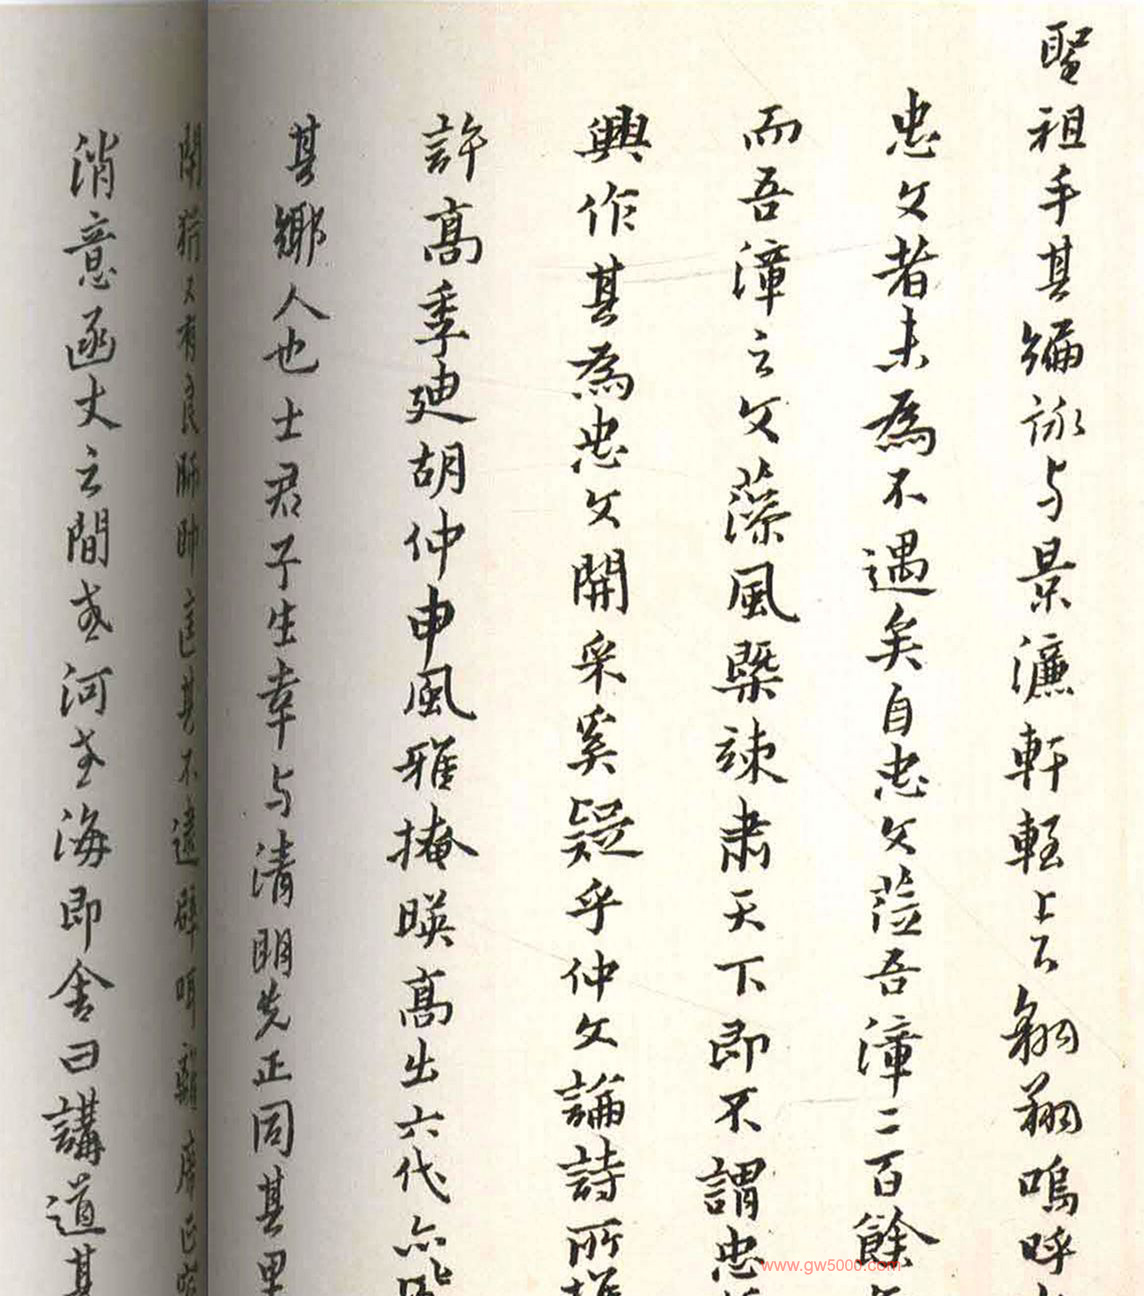 聖祖手其編詠与景濂軒輊上下翱翔嗚呼
忠文者未為不遇矣自忠文蒞吾漳二百餘
而吾漳之文藻風槩竦肅天下即不謂忠
興作其為忠文開采奚疑乎仲文論詩所
許高季迪胡仲申風雅掩暎高出六代亦
其鄉人也士君子生幸与清明先正同其里
開猶又有良師帥匡其不逮
消意函丈之間或河或海即舍曰講道其
www.gw5000.com